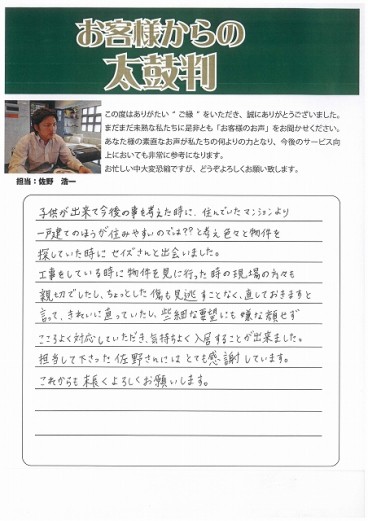 お客様からの
太鼓判
この度はありがたい“ご縁”をいただき、誠にありがとうございました。
まだまだ未熟な私たちに是非とも「お客様のお声」をお聞かせください。
あなた様の素直なお声が私たちの何よりの力となり、今後のサービス向
上においても非常に参考になります。
お忙しい中大変恐縮ですが、どうぞよろしくお願い致します。
担当：佐野 浩一
子供が出来て今後の事を考えた時に、住んでいたマンションより
一戸建てのほうが住みやすいのでは??と考え色々と物件を
探していた時にセイズさんと出会いました。
工事をしている時に物件を見に行った時の現場の方々も
親切でしたし、ちょっとした傷も見逃すことなく、直しておきますと
言って、きれいに直っていたし、些細な要望にも嫌な顔せず
こころよく対応していただき、気持ちよく入居することが出来ました。
担当して下さった佐野さんにはとても感謝しています。
これからも末長くよろしくお願いします。